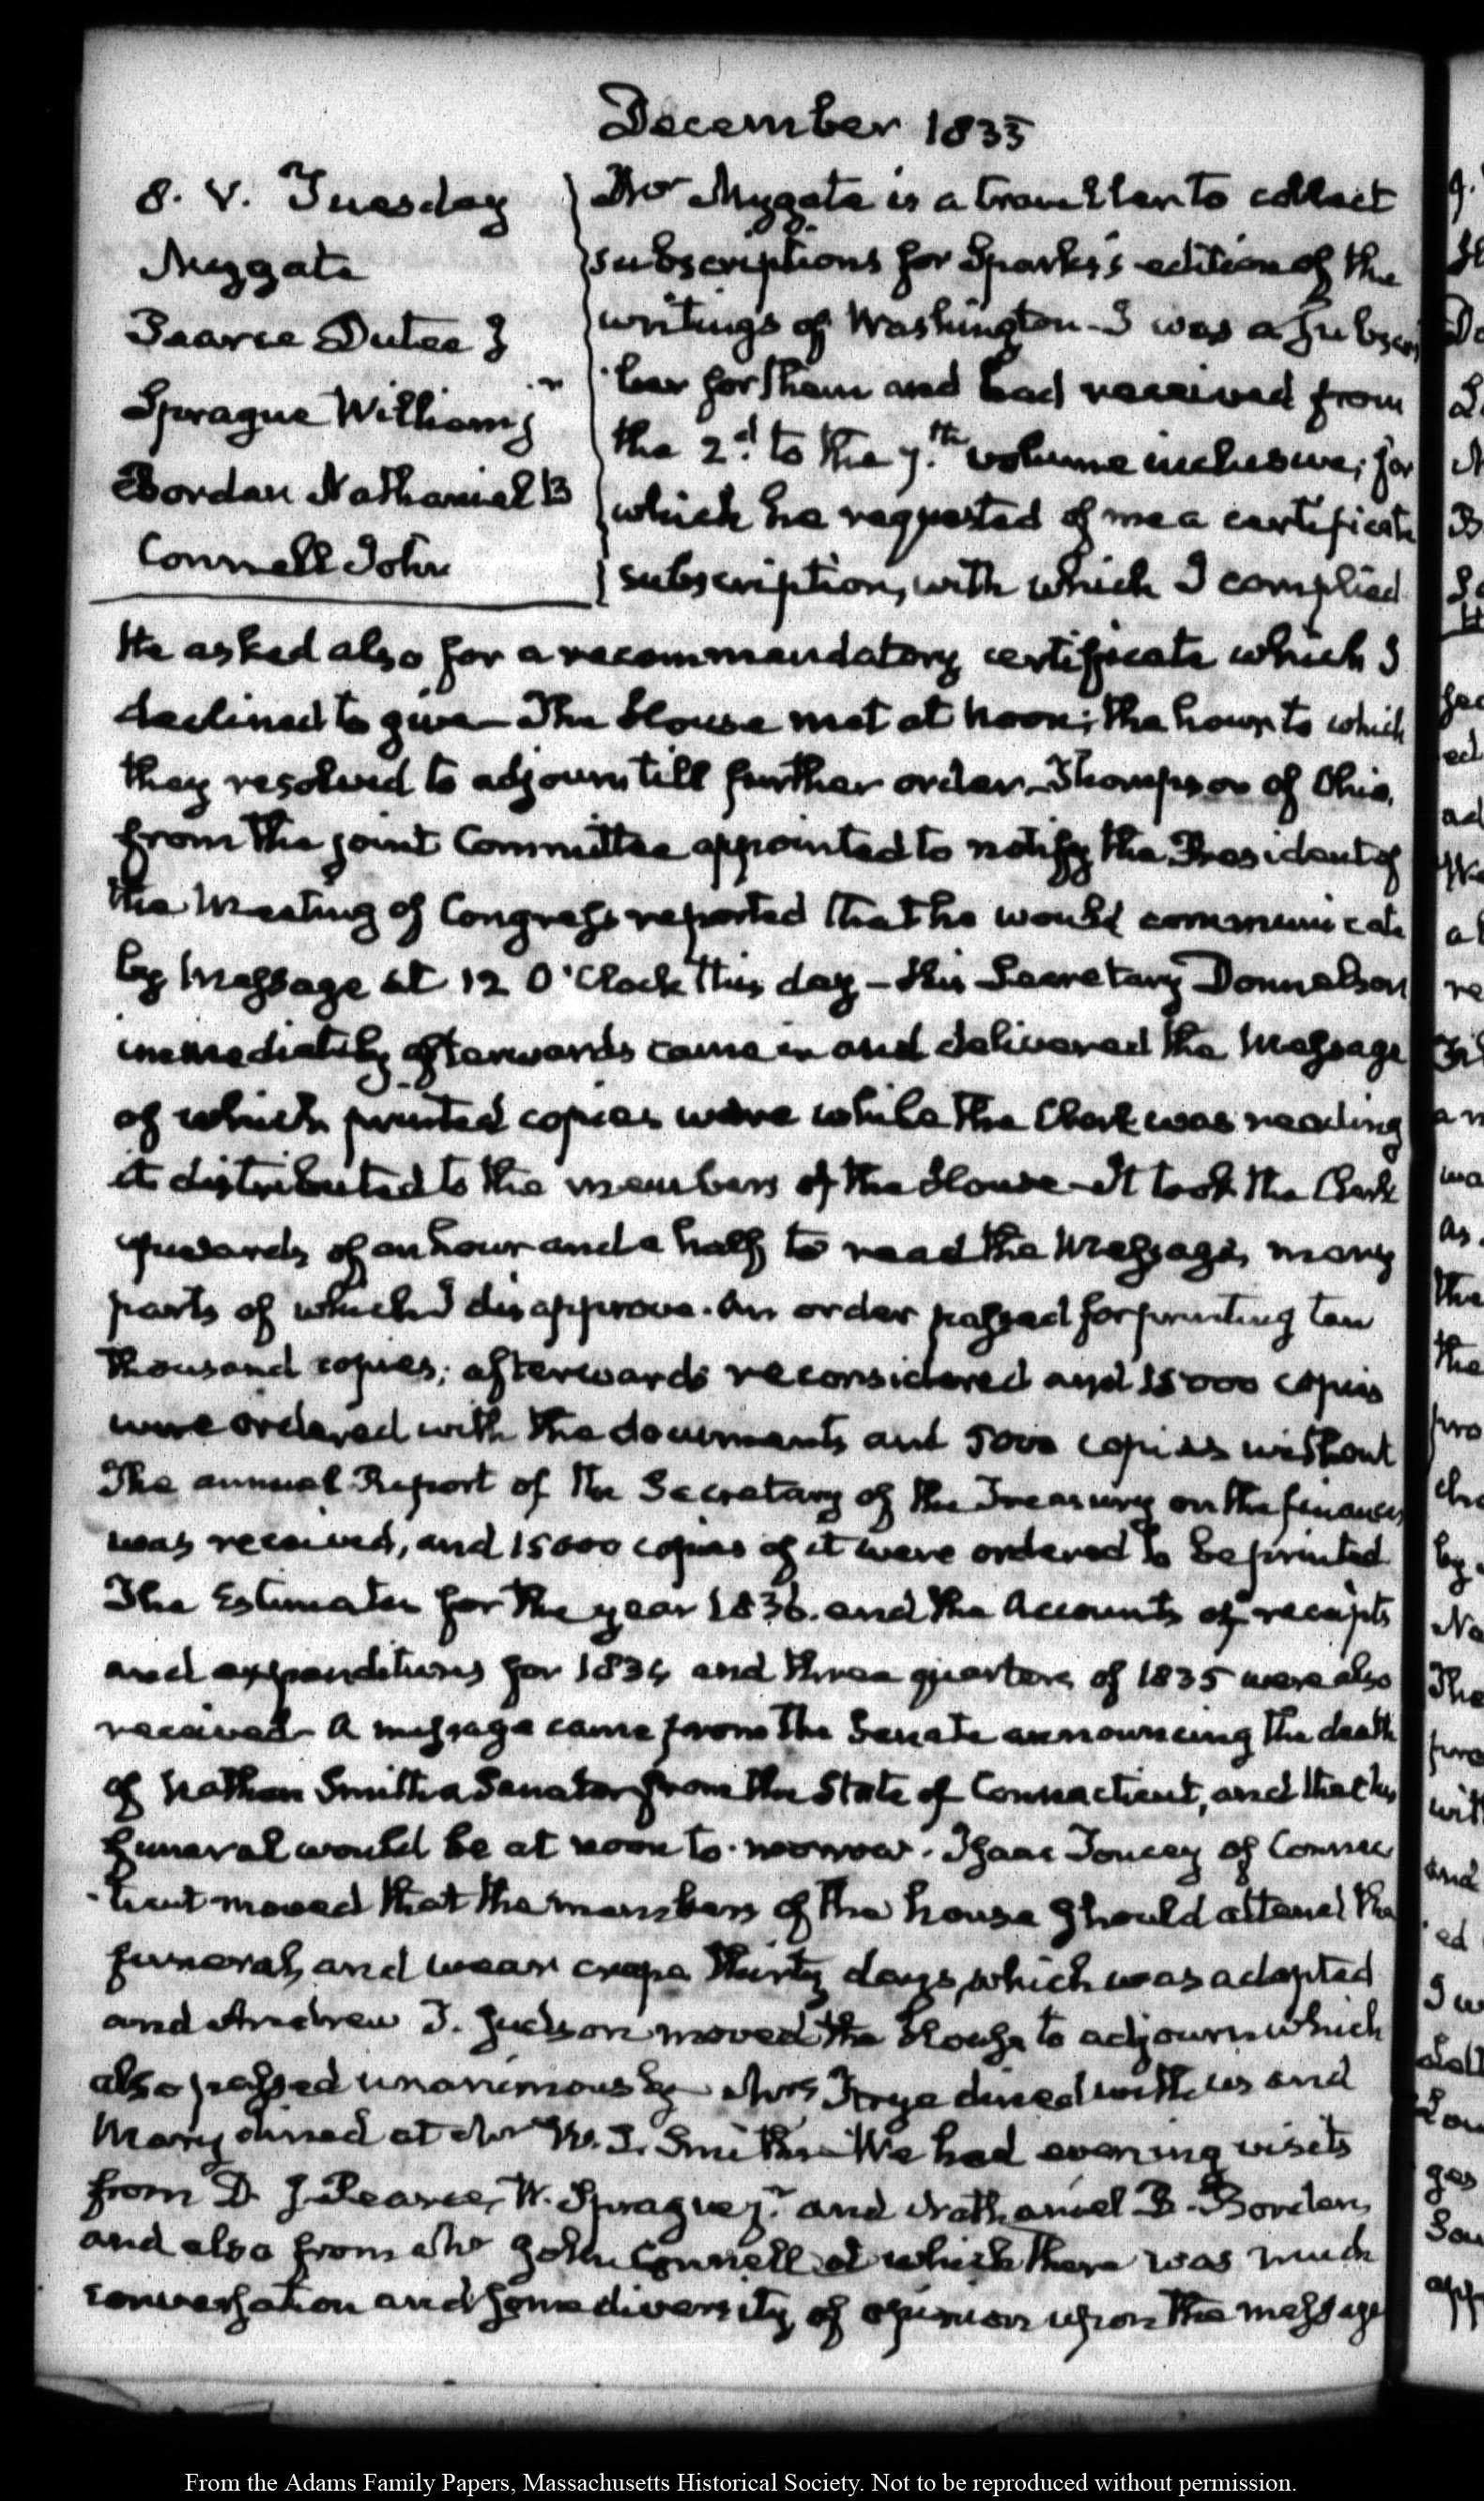 December 1835
8. V. Tuesday
Mygate
Pearce Dutee J
Sprague William jr
Borden Nathaniel B
Connell John
Mr Mygate is a traveller to collect
subscriptions for Sparks's edition of the
writings of Washington - I was a subscri
ber for them and had received from
the 2d. to the 7.th volume inclusive; for
which he requested of me a certificate
subscription, with which I complied
He asked also for a recommendatory certificate which I
declined to give - The House met at Noon; the hour to which
they resolved to adjourn till further order - Thompson of Ohio,
from the joint Committee appointed to notify the President of
the Meeting of Congress reported that he would communicate
by Message at 12 O'Clock this day - his Secretary Donnelson
immediately afterwards came in and delivered the Message
of which printed copies were while the Clerk was reading
it distributed to the members of the House - It took the Clerk
upwards of an hour and a half to read the Message, many
parts of which I disapprove. An order passed for printing ten
thousand copies; afterwards reconsidered and 15000 copies
were ordered with the documents and 5000 copies without
The annual Report of the Secretary of the Treasury on the finances
was received, and 15000 copies of it were ordered to be printed
The Estimates for the year 1836. and the Accounts of receipts
and expenditures for 1834 and three quarters of 1835 were also
received - A message came from the Senate announcing the death
of Nathan Smith a Senator from the State of Connecticut, and that his
funeral would be at noon to-morrow. Isaac Toucey of Connec
ticut moved that the members of the house should attend the
funeral, and wear crape thirty days, which was adopted
and Andrew T. Judson moved the House to adjourn which
also passed unanimously - Mrs Frye dined with us and
Mary dined at Mr W. S. Smith's - We had evening visits
from D. J. Pearce, W. Sprague jr. and Nathaniel B. Borden,
and also from Mr John Connell at which there was much
conversation and some diversity of opinion upon the message
From the Adams Family Papers, Massachusetts Historical Society. Not to be reproduced without permission.